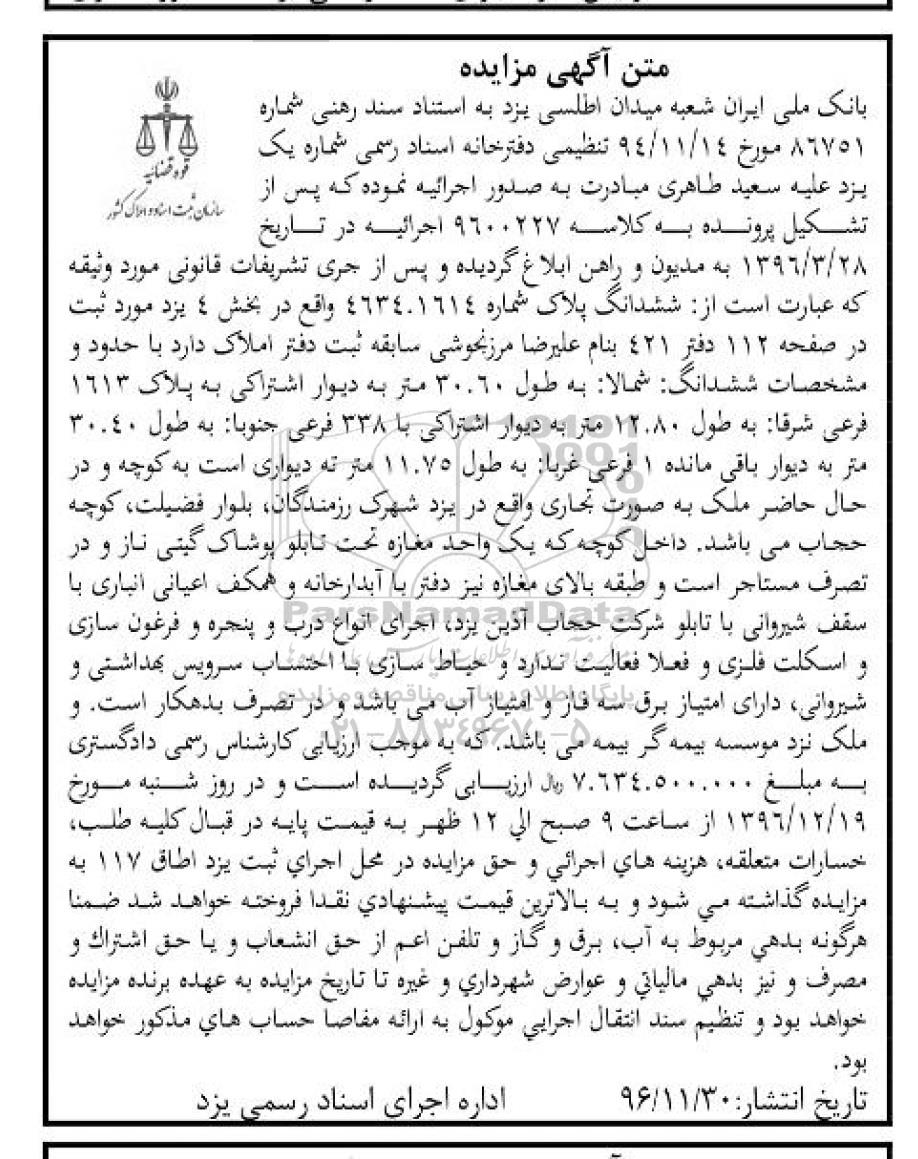 متن آگهی مزایده
قوه قضائیه
سازمان ثبت اسناد و املاک کشور
بانک ملی ایران شعبه میدان اطلسی یزد به استناد سند رهنی شماره
۸٦٧٥١ مورخ ٩٤/١١/١٤ تنظیمی دفترخانه اسناد رسمی شماره یک
یزد علیه سعید طاهری مبادرت به صدور اجرائیه نموده که پس از
تشکیل پرونده به کلاسه ٩٦٠٠٢٢٧ اجرائیه در تاریخ
١٣٩٦/٣/٢٨ به مدیون و راهن ابلاغ گردیده و پس از جری تشریفات قانونی مورد وثیقه
که عبارت است از: ششدانگ پلاک شماره ٤٦٣٤.١٦١٤ واقع در بخش ٤ یزد مورد ثبت
در صفحه ١١٢ دفتر ٤٢١ بنام علیرضا مرزنجوشی سابقه ثبت دفتر املاک دارد با حدود و
مشخصات ششدانگ: شمالا: به طول ٣٠.٦٠ متر به دیوار اشتراکی به پلاک ١٦١٣
فرعی شرقا: به طول ١٢.٨٠ متر به دیوار اشتراکی با ٣٣٨ فرعی جنوبا: به طول ٣٠.٤٠
متر به دیوار باقی مانده ١ فرعی غربا: به طول ١١.٧٥ متر ته دیواری است به کوچه و در
حال حاضر ملک به صورت تجاری واقع در یزد شهرک رزمندگان، بلوار فضیلت، کوچه
حجاب می باشد. داخل کوچه که یک واحد مغازه تحت تابلو پوشاک گیتی ناز و در
تصرف مستاجر است و طبقه بالای مغازه نیز دفتر با آبدارخانه و همکف اعیانی انباری با
سقف شیروانی با تابلو شرکت حجاب آذین یزد، اجرای انواع درب و پنجره و فرغون سازی
و اسکلت فلزی و فعلا فعالیت ندارد و حیاط سازی با احتساب سرویس بهداشتی و
شیروانی، دارای امتیاز برق سه فاز و امتیاز آب می باشد و در تصرف بدهکار است. و
ملک نزد موسسه بیمه گر بیمه می باشد. که به موجب ارزیابی کارشناس رسمی دادگستری
به مبلغ ٧.٦٣٤.٥٠٠.٠٠٠ ریال ارزیابی گردیده است و در روز شنبه مورخ
١٣٩٦/١٢/١٩ از ساعت ٩ صبح الي ١٢ ظهر به قیمت پایه در قبال کلیه طلب،
خسارات متعلقه، هزینه هاي اجرائي و حق مزایده در محل اجراي ثبت یزد اطاق ١١٧ به
مزایده گذاشته مي شود و به بالاترین قیمت پیشنهادي نقدا فروخته خواهد شد ضمنا
هرگونه بدهي مربوط به آب، برق و گاز و تلفن اعم از حق انشعاب و یا حق اشتراك و
مصرف و نیز بدهي مالیاتي و عوارض شهرداري و غیره تا تاریخ مزایده به عهده برنده مزایده
خواهد بود و تنظیم سند انتقال اجرایي موکول به ارائه مفاصا حساب هاي مذکور خواهد
بود.
تاریخ انتشار: ۹۶/۱۱/۳۰ اداره اجرای اسناد رسمی یزد
ParsNamadData
پایگاه اطلاع رسانی مناقصه و مزایده
۰۲۱-۸۸۳۴۹۶۷۰-۵